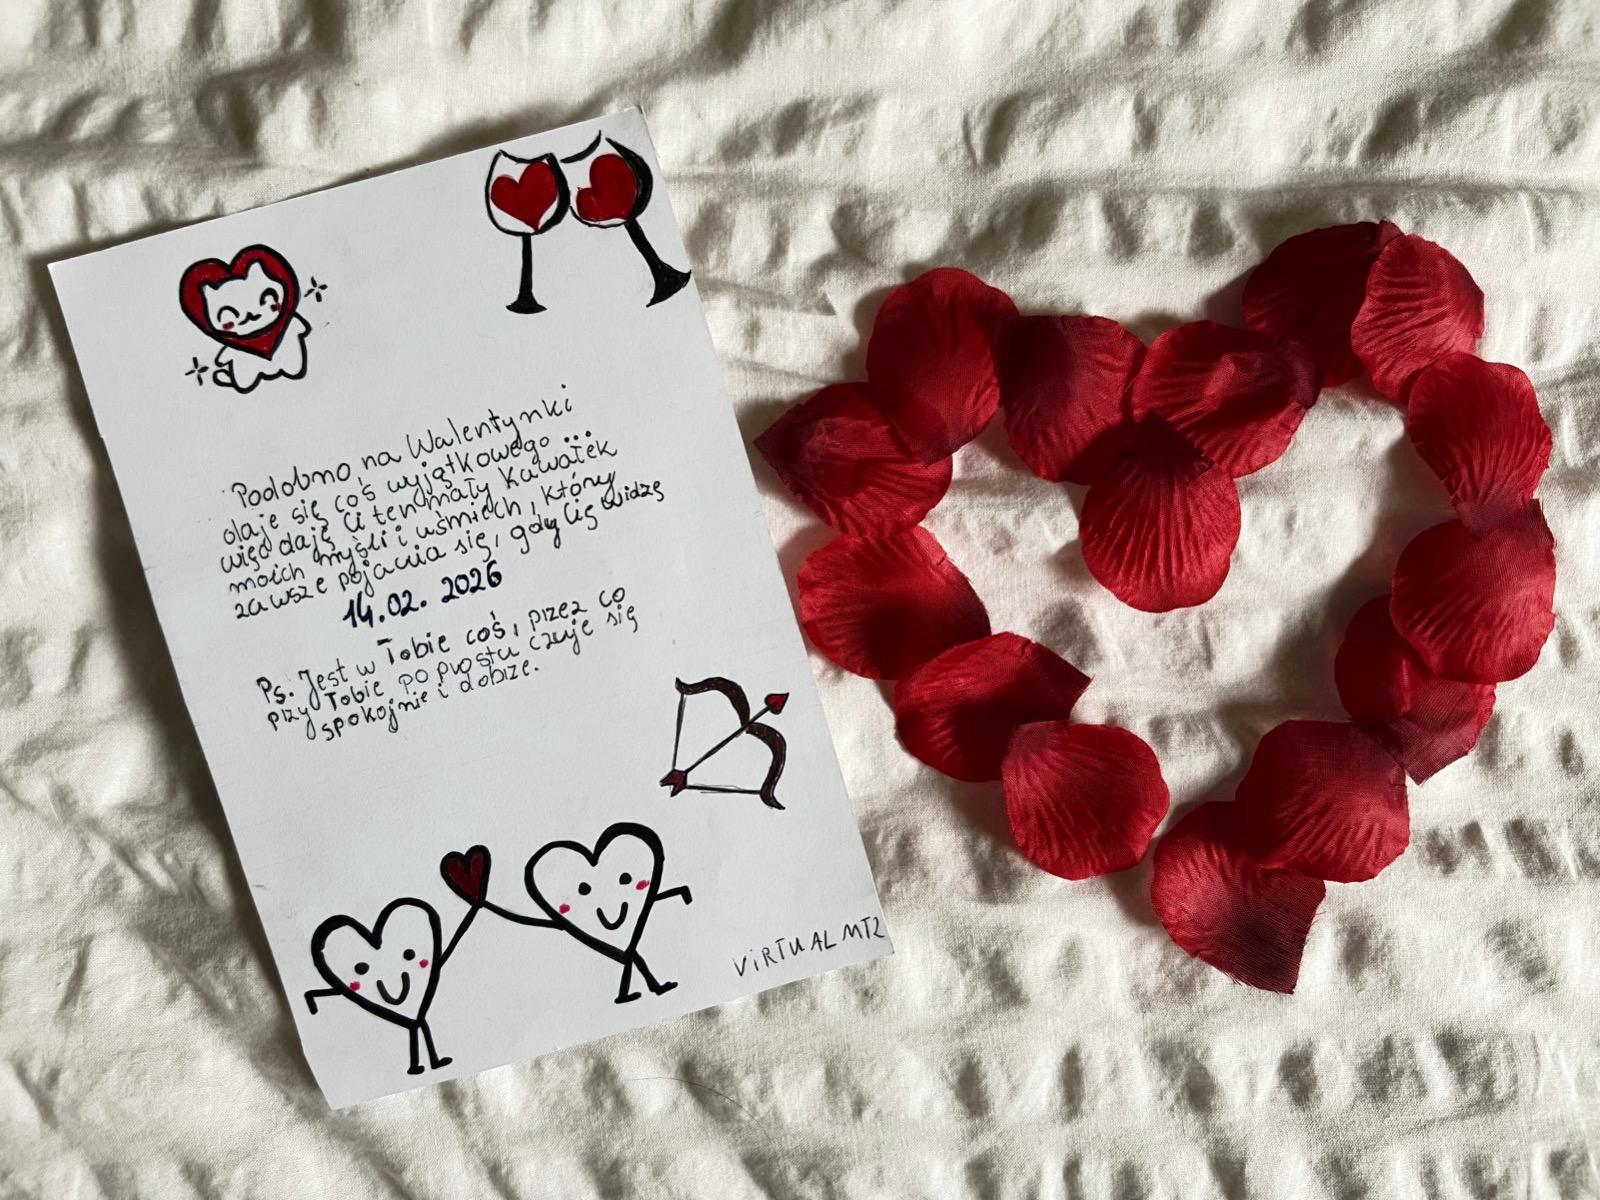 Podobno na Walentynki
daje się coś wyjątkowego...
więc daję Ci ten mały kawałek
moich myśli i uśmiech, który
zawsze pojawia się, gdy Cię widzę
14.02.2026
Ps. Jest w Tobie coś, przez co
przy Tobie po prostu czuję się
spokojnie i dobrze.
ViRTUALMT2